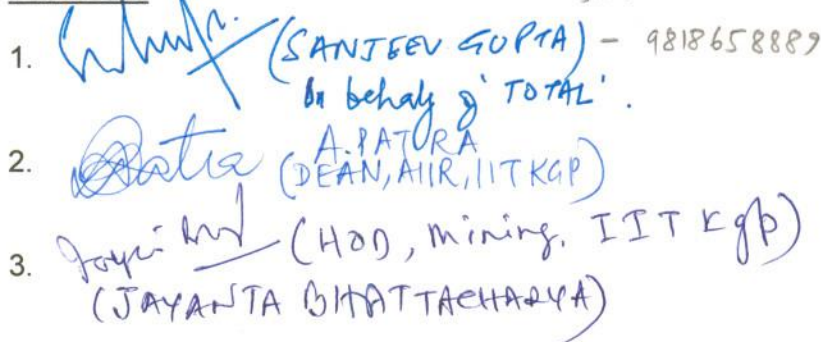 1. (SANJEEV GUPTA) - 9818658889
On behalf of 'TOTAL'.
2. A. PATRA
(DEAN, AIIR, IIT KGP)
3. (HOD, Mining, IIT Kgp)
(JAYANTA BHATTACHARYA)